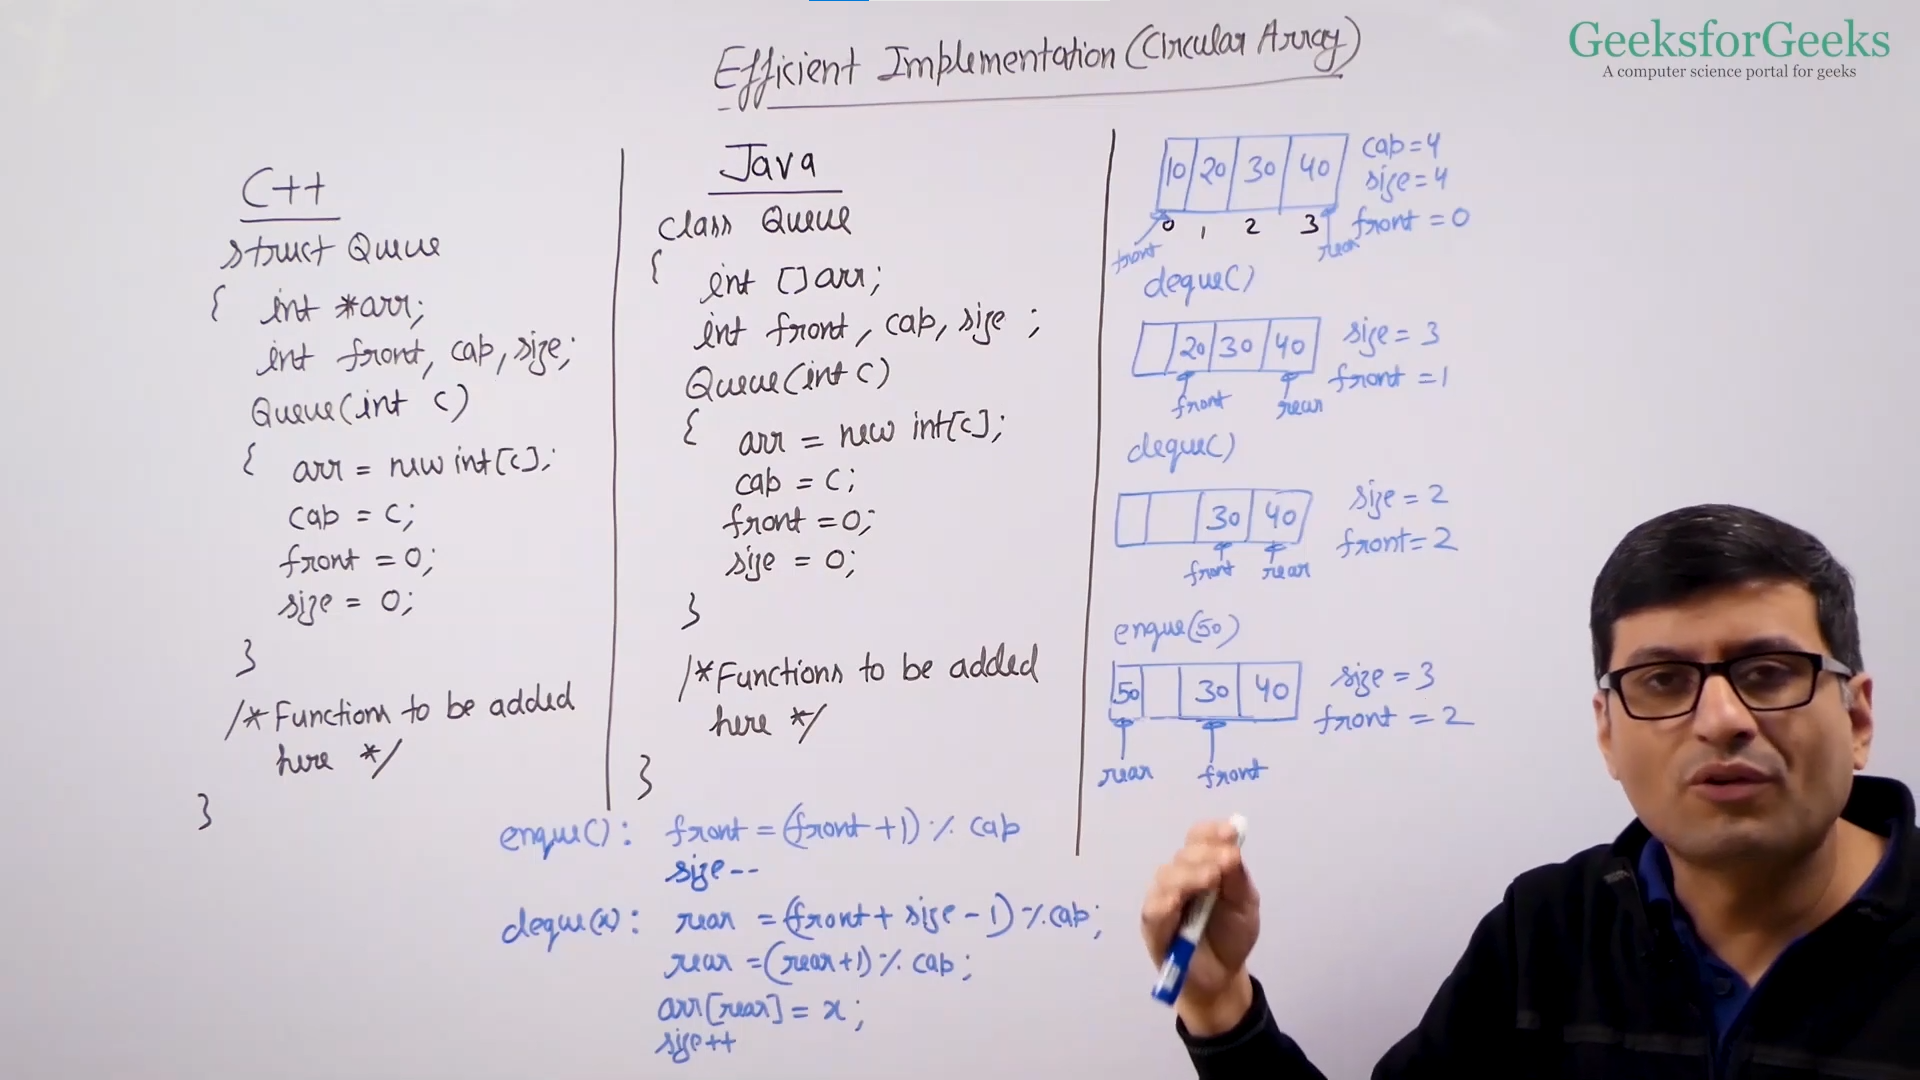 Efficient Implementation (Circular Array)
GeeksforGeeks
A computer science portal for geeks
C++
struct Queue
{ int *arr;
int front, cap, size;
Queue(int c)
{ arr = new int[c];
cap = c;
front = 0;
size = 0;
}
/* Functions to be added
here */
}
Java
class Queue
{ int []arr;
int front, cap, size ;
Queue(int c)
{ arr = new int[c];
cap = c;
front = 0;
size = 0;
}
/* Functions to be added
here */
}
10 20 30 40
cap = 4
size = 4
front = 0
0 1 2 3
front rear
deque()
20 30 40
size = 3
front = 1
front rear
deque()
30 40
size = 2
front = 2
front rear
enque(50)
50 30 40
size = 3
front = 2
rear front
enque(): front = (front + 1) % cap
size--
deque(x): rear = (front + size - 1) % cap;
rear = (rear + 1) % cap;
arr[rear] = x;
size++